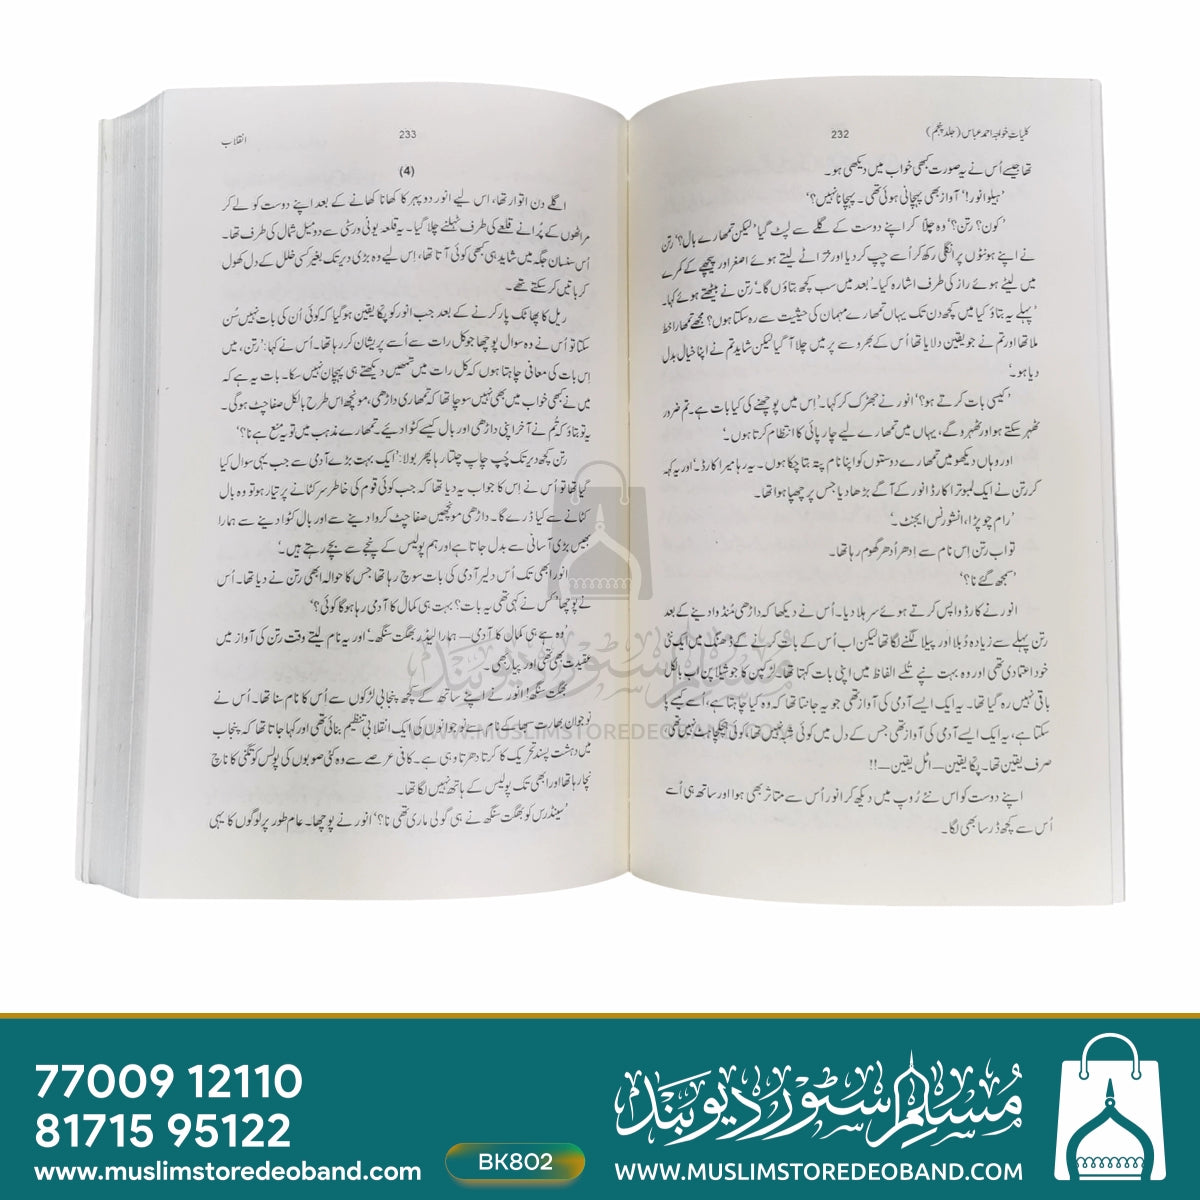 کلیات خواجہ احمد عباس (جلد پنجم)
232
تھا جیسے اُس نے یہ صورت کبھی خواب میں دیکھی ہو۔
’ہیلو انور!‘ آواز بھی پہچانی ہوئی تھی۔ ’پہچانا نہیں؟‘
’کون؟ رتن؟‘ وہ چلّا کر اپنے دوست کے گلے سے لپٹ گیا ’لیکن تمھارے بال؟‘ رتن
نے اپنے ہونٹوں پر انگلی رکھ کر اُسے چپ کر دیا اور خرّاٹے لیتے ہوئے اصغر اور پیچھے کے کمرے
میں لیٹے ہوئے راز کی طرف اشارہ کیا۔ ’بعد میں سب کچھ بتاؤں گا۔‘ رتن نے بیٹھتے ہوئے کہا۔
’پہلے یہ بتاؤ کیا میں کچھ دن تک یہاں تمھارے مہمان کی حیثیت سے رہ سکتا ہوں؟ مجھے تمھارا خط
ملا تھا اور تم نے جو یقین دلایا تھا اُس کے بھروسے پر میں چلا آیا لیکن شاید تم نے اپنا خیال بدل
دیا ہو۔‘
’کیسی بات کرتے ہو؟‘ انور نے جھڑک کر کہا۔ ’اِس میں پوچھنے کی کیا بات ہے۔ تم ضرور
ٹھہر سکتے ہو اور ٹھہرو گے، یہاں میں تمھارے لیے چارپائی کا انتظام کرتا ہوں۔‘
’اور وہاں دیکھو میں تمھارے دوستوں کو اپنا نام پتہ بتا چکا ہوں۔ یہ رہا میرا کارڈ۔‘ اور یہ کہہ
کر رتن نے ایک لمبوترا کارڈ انور کے آگے بڑھا دیا جس پر چھپا ہوا تھا۔
’رام چوپڑا، انشورنس ایجنٹ۔‘
تو اب رتن اِس نام سے اِدھر اُدھر گھوم رہا تھا۔
’سمجھ گئے نا؟‘
انور نے کارڈ واپس کرتے ہوئے سر ہلا دیا۔ اُس نے دیکھا کہ داڑھی مُنڈوا دینے کے بعد
رتن پہلے سے زیادہ دُبلا اور پیلا لگنے لگا تھا لیکن اب اُس کے بات کرنے کے ڈھنگ میں ایک نئی
خود اعتمادی تھی اور وہ بہت نپے تُلے الفاظ میں اپنی بات کہتا تھا۔ لڑکپن کا جوشیلا پن اب بالکل
باقی نہیں رہ گیا تھا۔ یہ ایک ایسے آدمی کی آواز تھی جو یہ جانتا تھا کہ وہ کیا چاہتا ہے، اُسے کیسے پا
سکتا ہے، یہ ایک ایسے آدمی کی آواز تھی جس کے دل میں کوئی شبہ نہیں تھا، کوئی ہچکچاہٹ نہیں تھی
صرف یقین تھا۔ پکّا یقین — اٹل یقین —!!
اپنے دوست کو اس نئے رُوپ میں دیکھ کر انور اُس سے متاثر بھی ہوا اور ساتھ ہی اُسے
اُس سے کچھ ڈر سا بھی لگا۔
233
انقلاب
(4)
اگلے دن اتوار تھا، اس لیے انور دوپہر کا کھانا کھانے کے بعد اپنے دوست کو لے کر
مراٹھوں کے پُرانے قلعے کی طرف ٹہلنے چلا گیا۔ یہ قلعہ یونی ورسٹی سے دو میل شمال کی طرف تھا۔
اُس سنسان جگہ میں شاید ہی کبھی کوئی آتا تھا، اِس لیے وہ بڑی دیر تک بغیر کسی خلل کے دل کھول
کر باتیں کر سکتے تھے۔
ریل کا پھاٹک پار کرنے کے بعد جب انور کو پکّا یقین ہو گیا کہ کوئی اُن کی بات نہیں سُن
سکتا تو اُس نے وہ سوال پوچھا جو کل رات سے اُسے پریشان کر رہا تھا۔ اُس نے کہا: ’رتن، میں
اِس بات کی معافی چاہتا ہوں کہ کل رات میں تمھیں دیکھتے ہی پہچان نہیں سکا۔ بات یہ ہے کہ
میں نے کبھی خواب میں بھی نہیں سوچا تھا کہ تمھاری داڑھی، مونچھ اس طرح بالکل صفاچٹ ہو گی۔
یہ تو بتاؤ کہ تُم نے آخر اپنی داڑھی اور بال کیسے کٹوا دیے۔ تمھارے مذہب میں تو یہ منع ہے نا؟‘
رتن کچھ دیر تک چُپ چاپ چلتا رہا پھر بولا: ’ایک بہت بڑے آدمی سے جب یہی سوال کیا
گیا تھا تو اُس نے اِس کا جواب یہ دیا تھا کہ جب کوئی قوم کی خاطر سر کٹانے پر تیار ہو تو وہ بال
کٹانے سے کیا ڈرے گا۔ داڑھی مونچھیں صفاچٹ کروا دینے سے اور بال کٹوا دینے سے ہمارا
بھیس بڑی آسانی سے بدل جاتا ہے اور ہم پولیس کے پنجے سے بچے رہتے ہیں۔‘
انور ابھی تک اُس دلیر آدمی کی بات سوچ رہا تھا جس کا حوالہ ابھی رتن نے دیا تھا۔ اُس
نے پوچھا ’کس نے کہی تھی یہ بات؟ بہت ہی کمال کا آدمی رہا ہوگا کوئی؟‘
’وہ ہے ہی کمال کا آدمی — ہمارا لیڈر بھگت سنگھ۔‘ اور یہ نام لیتے وقت رتن کی آواز میں
عقیدت بھی تھی اور پیار بھی۔
بھگت سنگھ! انور نے اپنے ساتھ کے کچھ پنجابی لڑکوں سے اُس کا نام سنا تھا۔ اُس نے
نوجوان بھارت سبھا کے نام سے نوجوانوں کی ایک انقلابی تنظیم بنائی تھی اور کہا جاتا تھا کہ پنجاب
میں دہشت پسند تحریک کا کرتا دھرتا وہی ہے۔ کافی عرصے سے وہ کئی صوبوں کی پولس کو تگنی کا ناچ
نچا رہا تھا اور ابھی تک پولیس کے ہاتھ نہیں لگا تھا۔
’سینڈرس کو بھگت سنگھ نے ہی گولی ماری تھی نا؟‘ انور نے پوچھا۔ عام طور پر لوگوں کا یہی
مسلم سٹور دیوبند
WWW.MUSLIMSTOREDEOBAND.COM
77009 12110
81715 95122
www.muslimstoredeoband.com
BK802
مسلم سٹور دیوبند
WWW.MUSLIMSTOREDEOBAND.COM